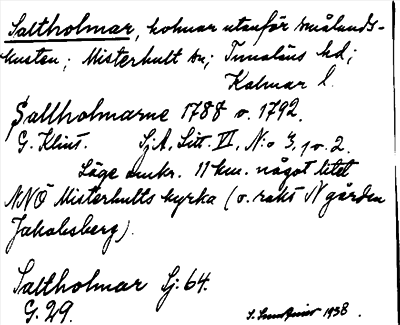 Saltholmar, holmar utanför Smålands-
kusten; Misterhult sn; Tunaläns hd;
Kalmar l.
Saltholmarne 1788 o. 1792.
G. Klint. Sj.A, Litt. VI, N:o 3, 1 o. 2.
Läge omkr. 11 km. något litet
NNÖ Misterhults kyrka (o. rakt N gården
Jakobsberg).
Saltholmar Sj. 64.
G. 29.
1938.